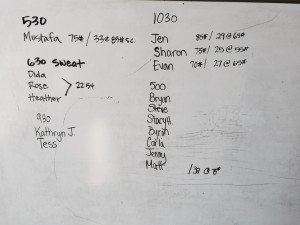 530
Mustafa 75# / 33@85# sc.
630 SWEAT
Dida
Rose
Heather
22:54
930
Kathryn J
Tess
1030
Jen 85# / 29@65#
Sharon 75# / 25@55#
Evan 70# / 27@65#
500
Bryan
Steve
Stacy H
Byron
Carla
Jenny
Matt